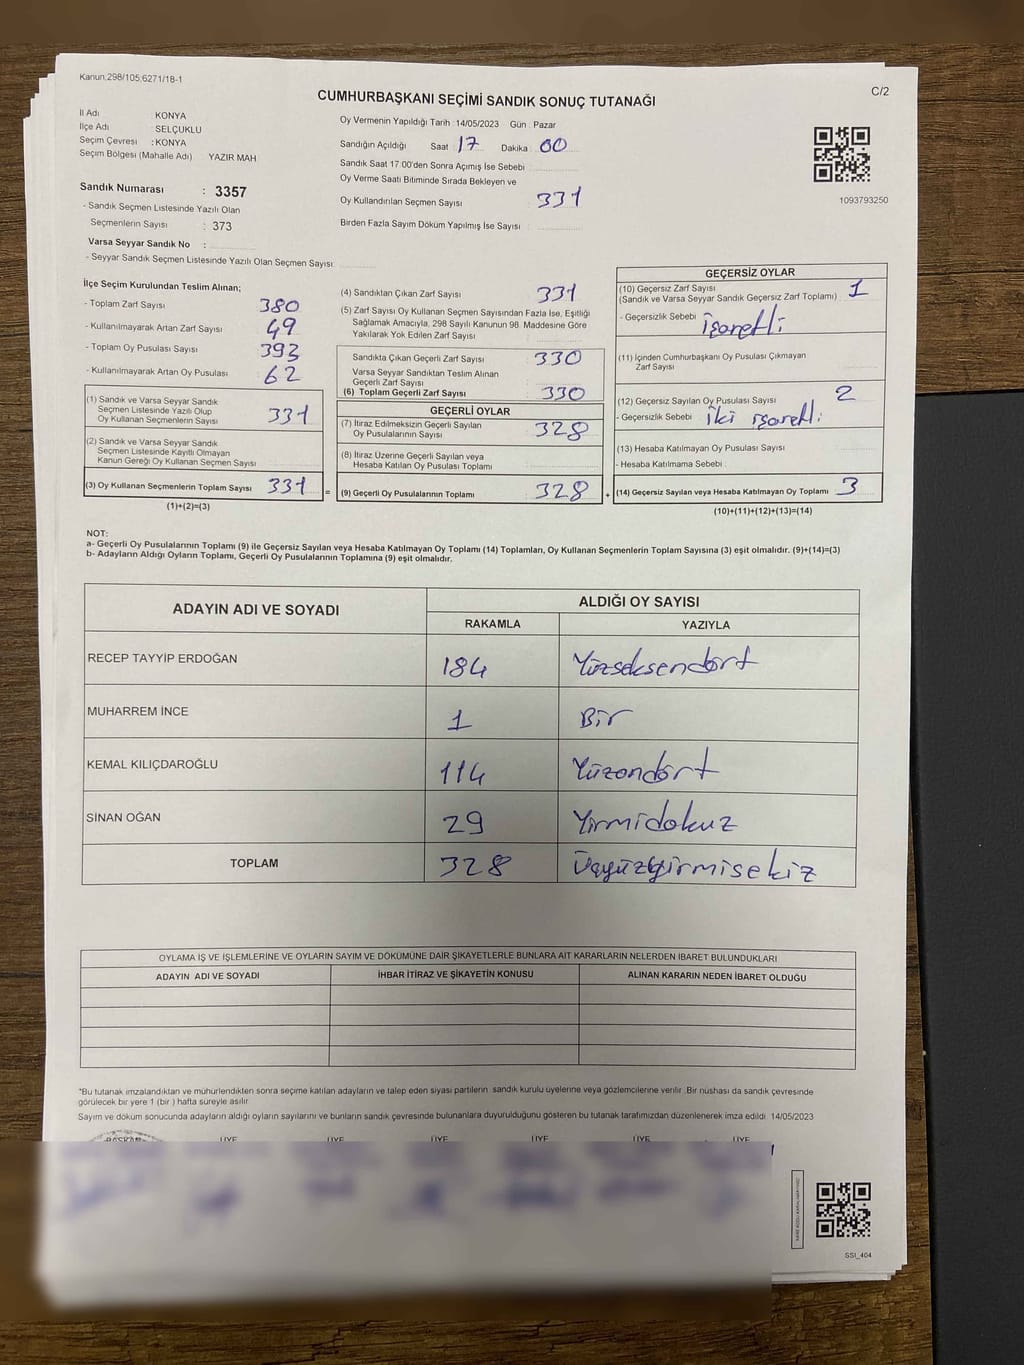 Kanun:298/105,6271/18-1
C/2
CUMHURBAŞKANI SEÇİMİ SANDIK SONUÇ TUTANAĞI
İl Adı KONYA
İlçe Adı : SELÇUKLU
Seçim Çevresi : KONYA
Seçim Bölgesi (Mahalle Adı) YAZIR MAH
Sandık Numarası : 3357
- Sandık Seçmen Listesinde Yazılı Olan
Seçmenlerin Sayısı : 373
Varsa Seyyar Sandık No :
- Seyyar Sandık Seçmen Listesinde Yazılı Olan Seçmen Sayısı
Oy Vermenin Yapıldığı Tarih : 14/05/2023 Gün : Pazar
Sandığın Açıldığı Saat 17 Dakika 00
Sandık Saat 17.00'den Sonra Açımış İse Sebebi
Oy Verme Saati Bitiminde Sırada Bekleyen ve
Oy Kullandırılan Seçmen Sayısı 331
Birden Fazla Sayım Döküm Yapılmış İse Sayısı
1093793250
İlçe Seçim Kurulundan Teslim Alınan;
- Toplam Zarf Sayısı 380
- Kullanılmayarak Artan Zarf Sayısı 49
- Toplam Oy Pusulası Sayısı 393
- Kullanılmayarak Artan Oy Pusulası 62
(1) Sandık ve Varsa Seyyar Sandık
Seçmen Listesinde Yazılı Olup
Oy Kullanan Seçmenlerin Sayısı 331
(2) Sandık ve Varsa Seyyar Sandık
Seçmen Listesinde Kayıtlı Olmayan
Kanun Gereği Oy Kullanan Seçmen Sayısı
(3) Oy Kullanan Seçmenlerin Toplam Sayısı 331 =
(1)+(2)=(3)
(4) Sandıktan Çıkan Zarf Sayısı 331
(5) Zarf Sayısı Oy Kullanan Seçmen Sayısından Fazla İse, Eşitliği
Sağlamak Amacıyla, 298 Sayılı Kanunun 98. Maddesine Göre
Yakılarak Yok Edilen Zarf Sayısı
Sandıkta Çıkan Geçerli Zarf Sayısı 330
Varsa Seyyar Sandıktan Teslim Alınan
Geçerli Zarf Sayısı
(6) Toplam Geçerli Zarf Sayısı 330
GEÇERLİ OYLAR
(7) İtiraz Edilmeksizin Geçerli Sayılan
Oy Pusulalarının Sayısı 328
(8) İtiraz Üzerine Geçerli Sayılan veya
Hesaba Katılan Oy Pusulası Toplamı
(9) Geçerli Oy Pusulalarının Toplamı 328 +
GEÇERSİZ OYLAR
(10) Geçersiz Zarf Sayısı 1
(Sandık ve Varsa Seyyar Sandık Geçersiz Zarf Toplamı)
- Geçersizlik Sebebi işaretli
(11) İçinden Cumhurbaşkanı Oy Pusulası Çıkmayan
Zarf Sayısı
(12) Geçersiz Sayılan Oy Pusulası Sayısı 2
- Geçersizlik Sebebi İki işaretli
(13) Hesaba Katılmayan Oy Pusulası Sayısı
- Hesaba Katılmama Sebebi :
(14) Geçersiz Sayılan veya Hesaba Katılmayan Oy Toplamı 3
(10)+(11)+(12)+(13)=(14)
NOT:
a- Geçerli Oy Pusulalarının Toplamı (9) ile Geçersiz Sayılan veya Hesaba Katılmayan Oy Toplamı (14) Toplamları, Oy Kullanan Seçmenlerin Toplam Sayısına (3) eşit olmalıdır. (9)+(14)=(3)
b- Adayların Aldığı Oyların Toplamı, Geçerli Oy Pusulalarının Toplamına (9) eşit olmalıdır.
ADAYIN ADI VE SOYADI ALDIĞI OY SAYISI
RAKAMLA YAZIYLA
RECEP TAYYİP ERDOĞAN 184 Yüzseksendört
MUHARREM İNCE 1 Bir
KEMAL KILIÇDAROĞLU 114 Yüzondört
SİNAN OĞAN 29 Yirmidokuz
TOPLAM 328 Üçyüzyirmisekiz
OYLAMA İŞ VE İŞLEMLERİNE VE OYLARIN SAYIM VE DÖKÜMÜNE DAİR ŞİKAYETLERLE BUNLARA AİT KARARLARIN NELERDEN İBARET BULUNDUKLARI
ADAYIN ADI VE SOYADI İHBAR İTİRAZ VE ŞİKAYETİN KONUSU ALINAN KARARIN NEDEN İBARET OLDUĞU
*Bu tutanak imzalandıktan ve mühürlendikten sonra seçime katılan adayların ve talep eden siyasi partilerin sandık kurulu üyelerine veya gözlemcilerine verilir. Bir nüshası da sandık çevresinde
görülecek bir yere 1 (bir ) hafta süreyle asılır
Sayım ve döküm sonucunda adayların aldığı oyların sayılarını ve bunların sandık çevresinde bulunanlara duyurulduğunu gösteren bu tutanak tarafımızdan düzenlenerek imza edildi. 14/05/2023
BAŞKAN ÜYE ÜYE ÜYE ÜYE ÜYE ÜYE
SSI_404